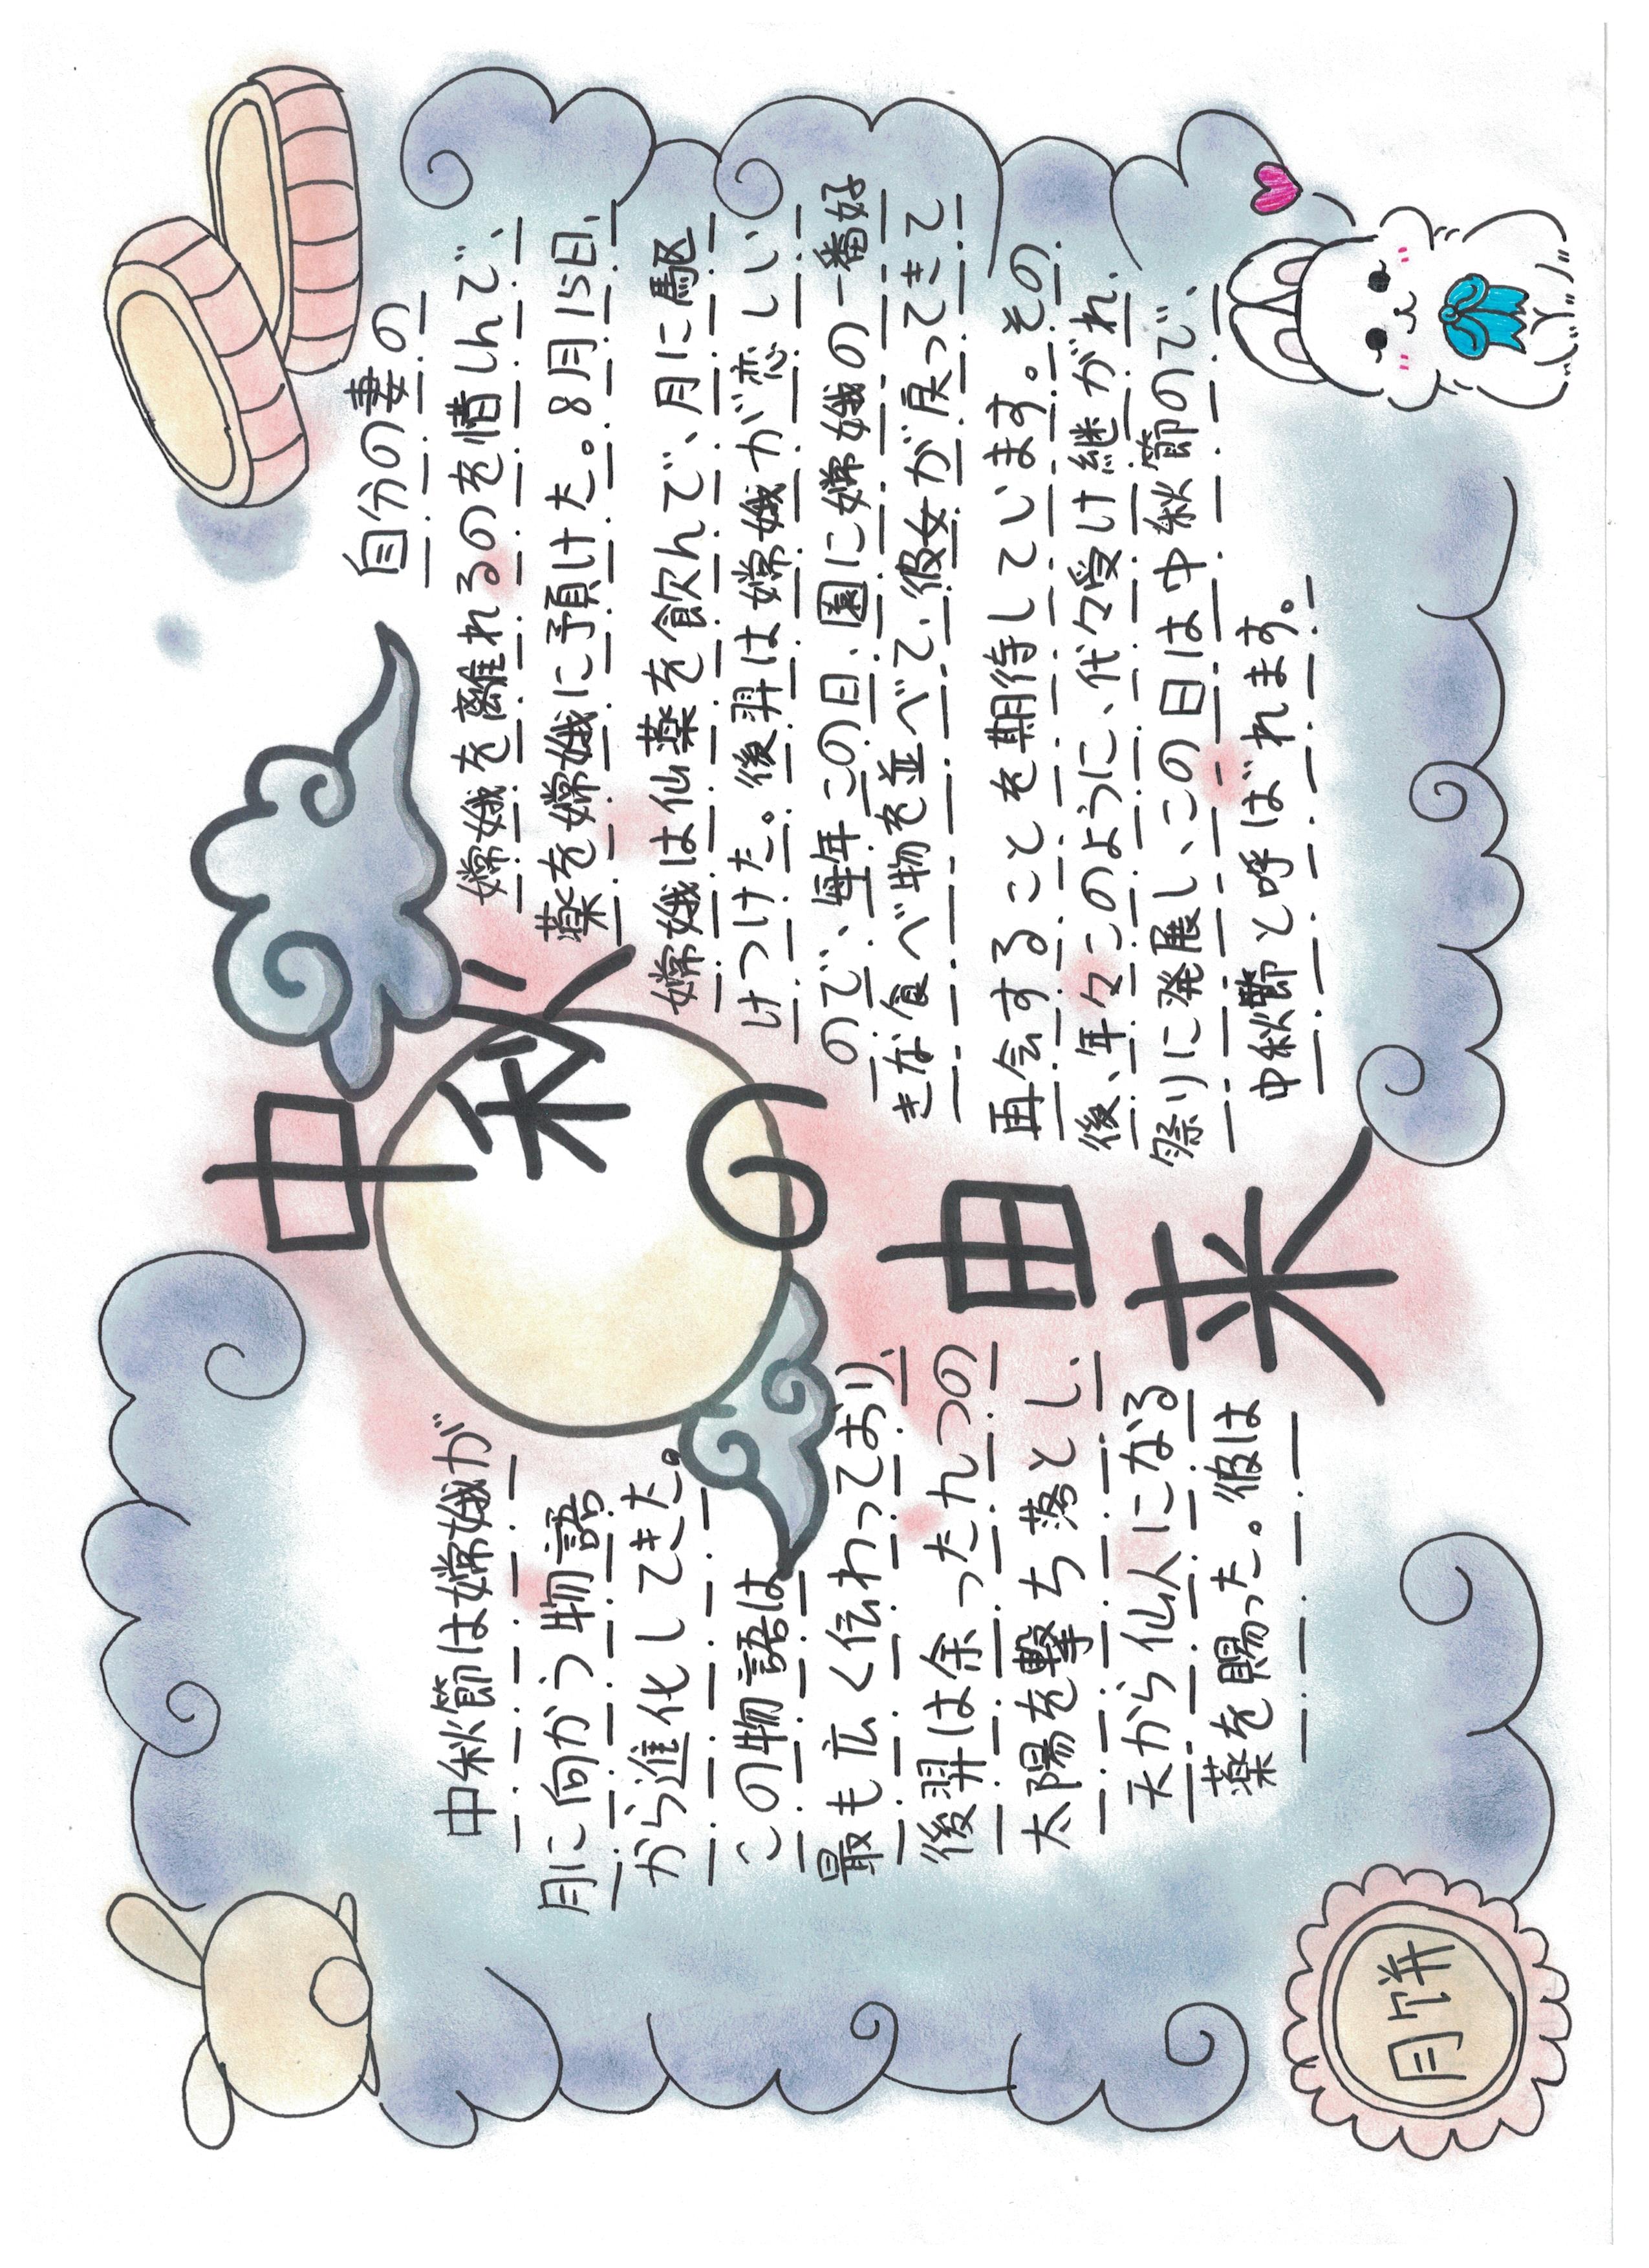 中秋の由来
中秋節は嫦娥が
月に向かう物語
から進化してきた。
この物語は
最も広く伝わっており
後羿は余った九つの
太陽を撃ち落とし、
天から仙人になる
薬を賜った。彼は
自分の妻の
嫦娥を離れるのを惜しんで、
薬を嫦娥に預けた。8月15日、
嫦娥は仙薬を飲んで、月に駆
けつけた。後羿は嫦娥が恋しい
ので、毎年この日、園に嫦娥の一番好
きな食べ物を並べて、彼女が戻ってきて
再会することを期待しています。その
後、年々このように、代々受け継がれ、
祭りに発展し、この日は中秋節ので、
中秋節と呼ばれます。
月饼